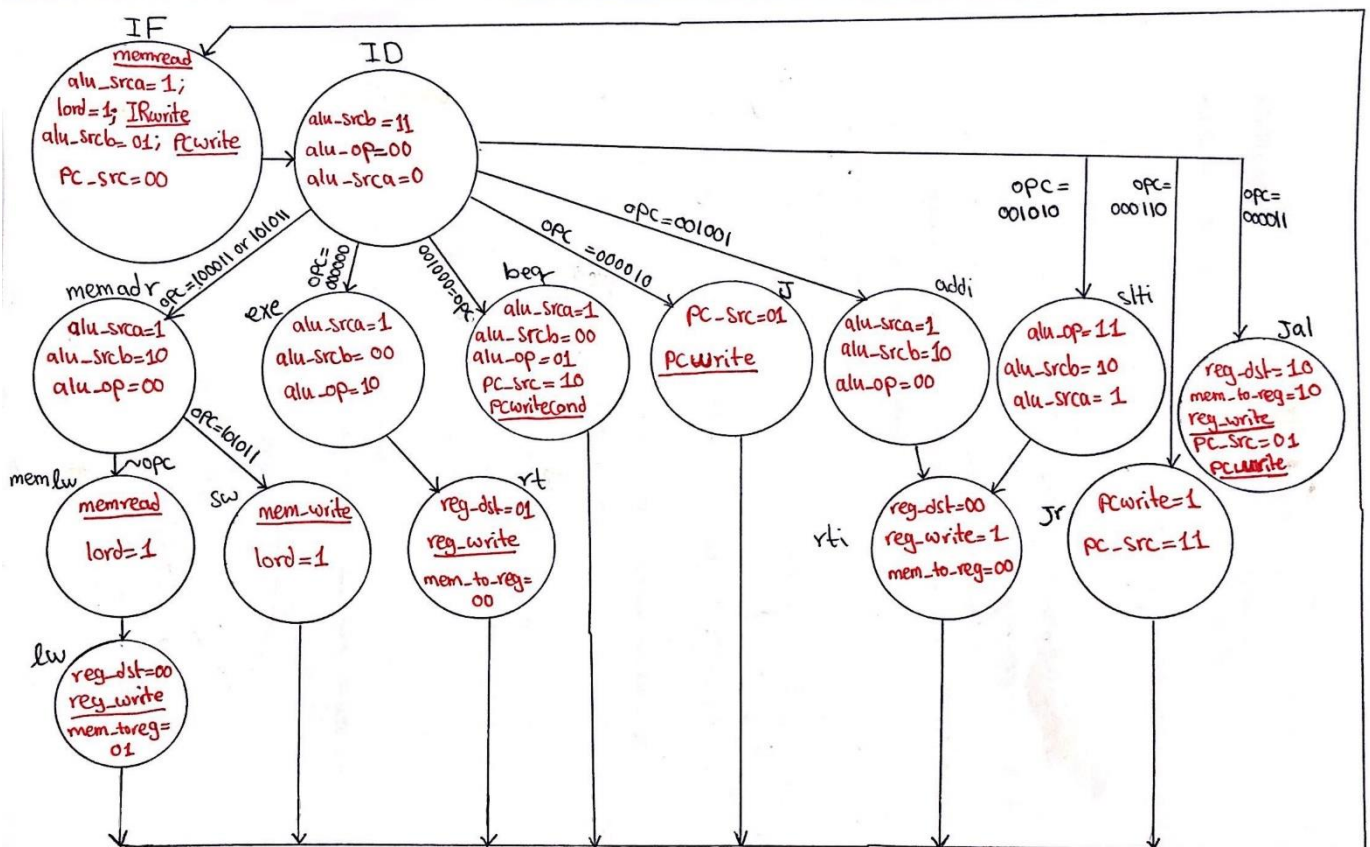 IF
memread
alu_srca= 1;
lord=1; IRwrite
alu_srcb= 01; PCwrite
PC_src=00
ID
alu_srcb =11
alu_op=00
alu_srca=0
opc=100011 or 101011
opc=
000000
001000=opc
opc =000010
opc=001001
opc=
001010
opc=
000110
opc=
000011
memadr
alu_srca=1
alu_srcb=10
alu_op=00
exe
alu_srca=1
alu_srcb= 00
alu_op=10
beq
alu_srca=1
alu_srcb= 00
alu_op=01
PC_src = 10
PCwriteCond
J
PC_src=01
PCWrite
addi
alu_srca=1
alu_srcb=10
alu_op=00
slti
alu_op=11
alu_srcb= 10
alu_srca= 1
Jal
reg_dst=10
mem_to_reg=10
reg_write
PC_src=01
PCwrite
~opc
opc=101011
memlw
memread
lord=1
sw
mem_write
lord=1
rt
reg_dst=01
reg_write
mem_to_reg=
00
rti
reg_dst=00
reg_write=1
mem_to_reg=00
Jr
PCwrite=1
PC_src=11
lw
reg_dst=00
reg_write
mem_toreg=
01